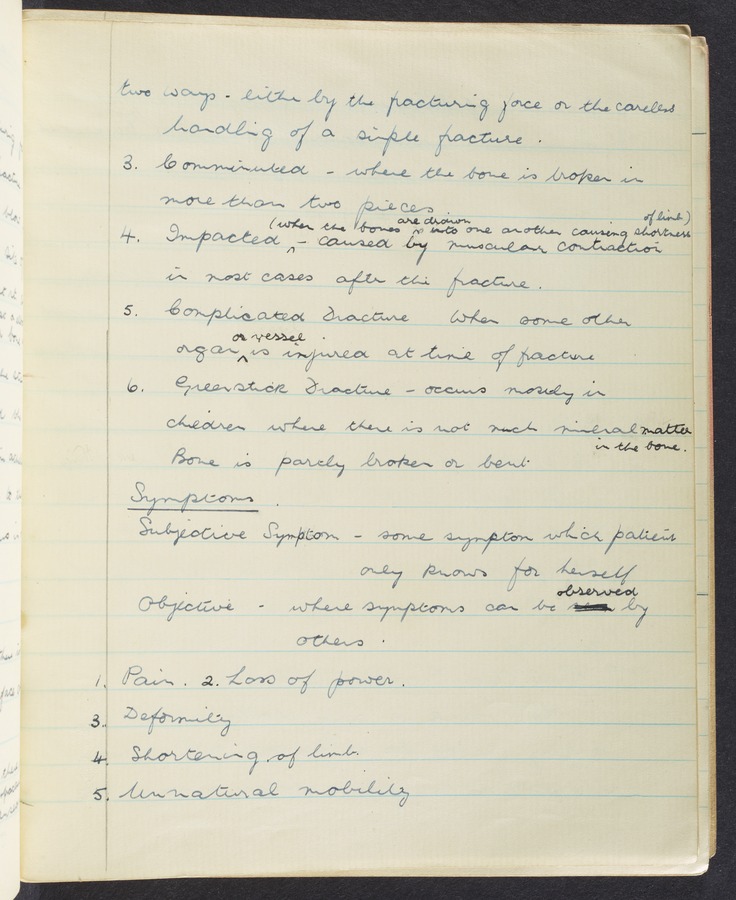 two ways - either by the fracturing force or the careless
handling of a simple fracture.
3. Comminuted - where the bone is broken in
more than two pieces
4. Impacted (when the bones are drawn into one another causing shortness of limb) - caused by muscular contraction
in most cases after the fracture.
5. Complicated Fracture when some other
organ or vessel is injured at time of fracture
6. Greenstick Fracture - occurs mostly in
children where there is not much mineral matter
in the bone.
Bone is partly broken or bent
Symptoms.
Subjective Symptom - some symptom which patient
only knows for herself
Objective - where symptoms can be observed by
others.
1. Pain. 2. Loss of power.
3. Deformity
4. Shortening of limb.
5. Unnatural mobility